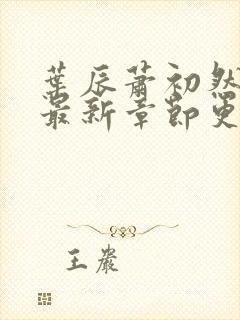 葉辰蕭初然
最新章節更
王嚴